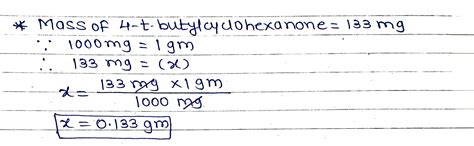 * Mass of 4-t-butylcyclohexanone = 133 mg
∵ 1000 mg = 1 gm
∴ 133 mg = (x)
x = 133 mg × 1 gm
1000 mg
x = 0.133 gm